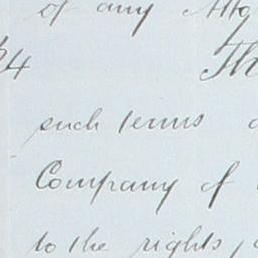 of any
4 Th
such terms
Company of
to the rights